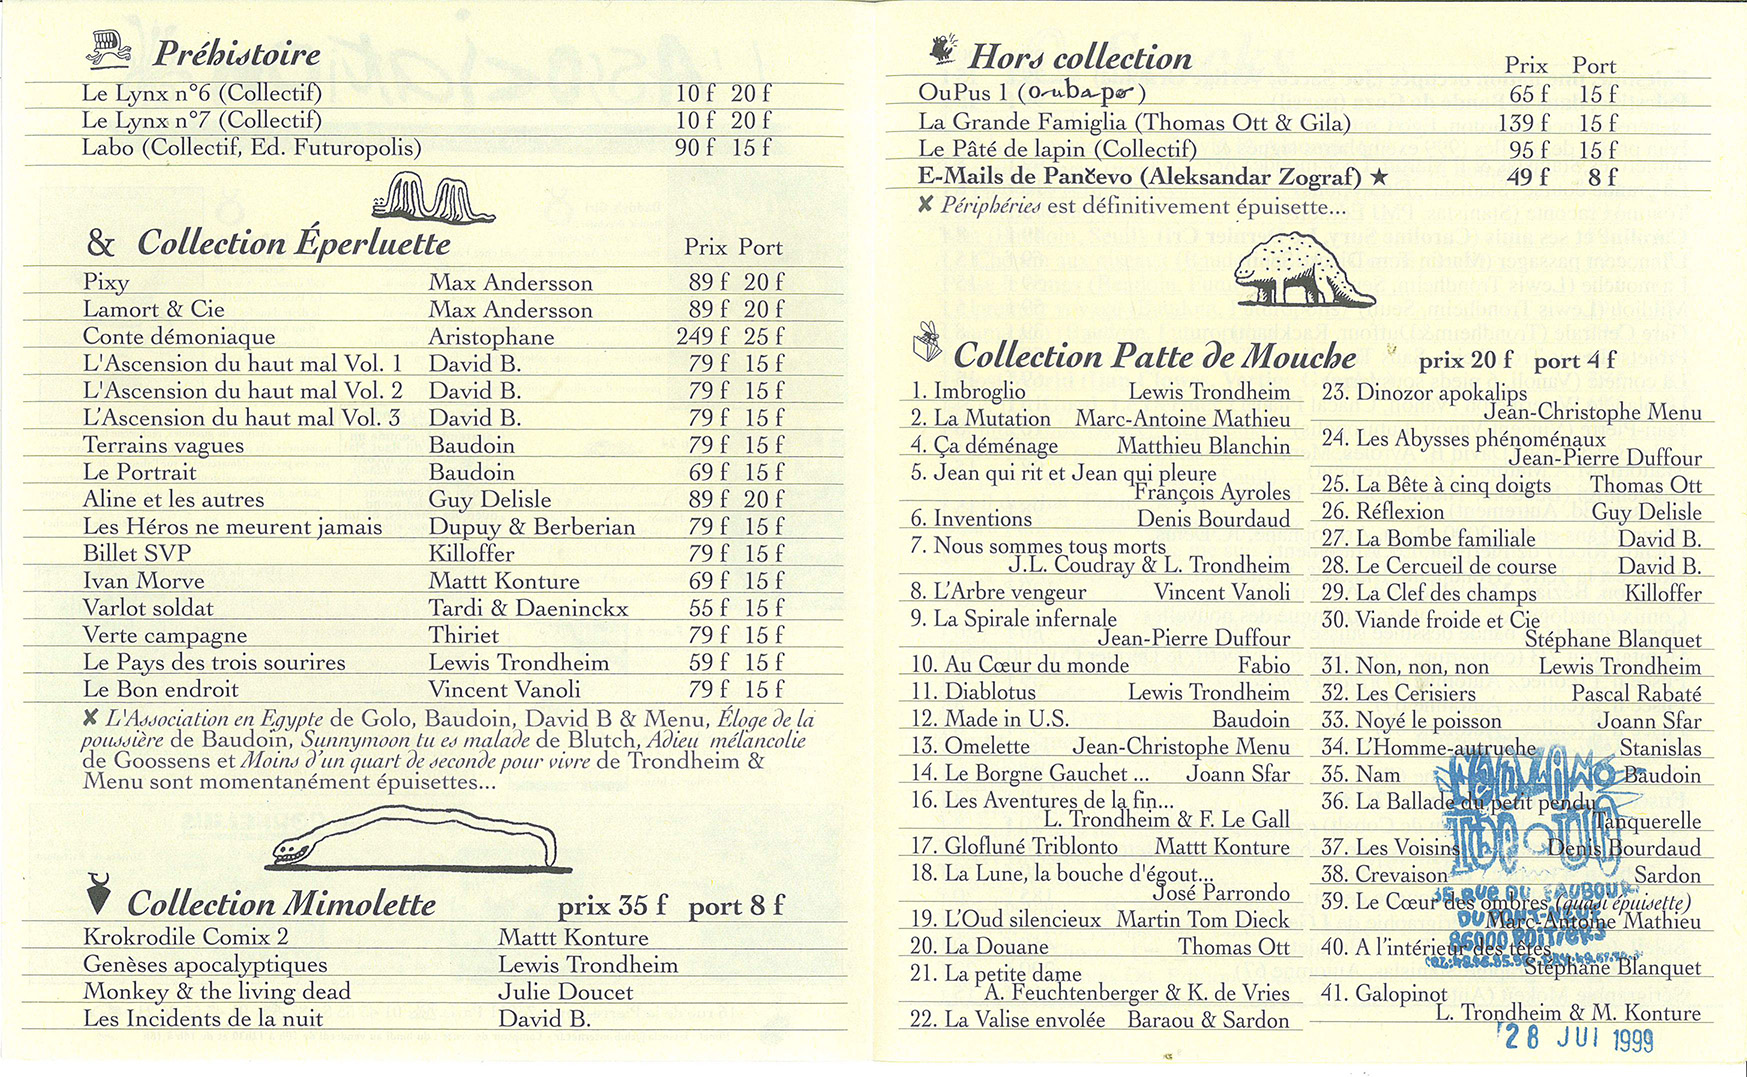 Préhistoire
Le Lynx n°6 (Collectif) 10 f 20 f
Le Lynx n°7 (Collectif) 10 f 20 f
Labo (Collectif, Ed. Futuropolis) 90 f 15 f
& Collection Éperluette Prix Port
Pixy Max Andersson 89 f 20 f
Lamort & Cie Max Andersson 89 f 20 f
Conte démoniaque Aristophane 249 f 25 f
L'Ascension du haut mal Vol. 1 David B. 79 f 15 f
L'Ascension du haut mal Vol. 2 David B. 79 f 15 f
L'Ascension du haut mal Vol. 3 David B. 79 f 15 f
Terrains vagues Baudoin 79 f 15 f
Le Portrait Baudoin 69 f 15 f
Aline et les autres Guy Delisle 89 f 20 f
Les Héros ne meurent jamais Dupuy & Berberian 79 f 15 f
Billet SVP Killoffer 79 f 15 f
Ivan Morve Mattt Konture 69 f 15 f
Varlot soldat Tardi & Daeninckx 55 f 15 f
Verte campagne Thiriet 79 f 15 f
Le Pays des trois sourires Lewis Trondheim 59 f 15 f
Le Bon endroit Vincent Vanoli 79 f 15 f
✘ L'Association en Egypte de Golo, Baudoin, David B & Menu, Éloge de la
poussière de Baudoin, Sunnymoon tu es malade de Blutch, Adieu mélancolie
de Goossens et Moins d'un quart de seconde pour vivre de Trondheim &
Menu sont momentanément épuisettes...
Collection Mimolette prix 35 f port 8 f
Krokrodile Comix 2 Mattt Konture
Genèses apocalyptiques Lewis Trondheim
Monkey & the living dead Julie Doucet
Les Incidents de la nuit David B.
Hors collection Prix Port
OuPus 1 (oubapo) 65 f 15 f
La Grande Famiglia (Thomas Ott & Gila) 139 f 15 f
Le Pâté de lapin (Collectif) 95 f 15 f
E-Mails de Pančevo (Aleksandar Zograf) ★ 49 f 8 f
✘ Périphéries est définitivement épuisette...
Collection Patte de Mouche prix 20 f port 4 f
1. Imbroglio Lewis Trondheim
2. La Mutation Marc-Antoine Mathieu
4. Ça déménage Matthieu Blanchin
5. Jean qui rit et Jean qui pleure
François Ayroles
6. Inventions Denis Bourdaud
7. Nous sommes tous morts
J.L. Coudray & L. Trondheim
8. L'Arbre vengeur Vincent Vanoli
9. La Spirale infernale
Jean-Pierre Duffour
10. Au Cœur du monde Fabio
11. Diablotus Lewis Trondheim
12. Made in U.S. Baudoin
13. Omelette Jean-Christophe Menu
14. Le Borgne Gauchet ... Joann Sfar
16. Les Aventures de la fin...
L. Trondheim & F. Le Gall
17. Glofluné Triblonto Mattt Konture
18. La Lune, la bouche d'égout...
José Parrondo
19. L'Oud silencieux Martin Tom Dieck
20. La Douane Thomas Ott
21. La petite dame
A. Feuchtenberger & K. de Vries
22. La Valise envolée Baraou & Sardon
23. Dinozor apokalips
Jean-Christophe Menu
24. Les Abysses phénoménaux
Jean-Pierre Duffour
25. La Bête à cinq doigts Thomas Ott
26. Réflexion Guy Delisle
27. La Bombe familiale David B.
28. Le Cercueil de course David B.
29. La Clef des champs Killoffer
30. Viande froide et Cie
Stéphane Blanquet
31. Non, non, non Lewis Trondheim
32. Les Cerisiers Pascal Rabaté
33. Noyé le poisson Joann Sfar
34. L'Homme-autruche Stanislas
35. Nam Baudoin
36. La Ballade du petit pendu
Tanquerelle
37. Les Voisins Denis Bourdaud
38. Crevaison Sardon
39. Le Cœur des ombres (quasi épuisette)
Marc-Antoine Mathieu
40. A l'intérieur des têtes
Stéphane Blanquet
41. Galopinot
L. Trondheim & M. Konture
35, RUE DU FAUBOURG
DU PONT-NEUF
86000 POITIERS
28 JUI 1999